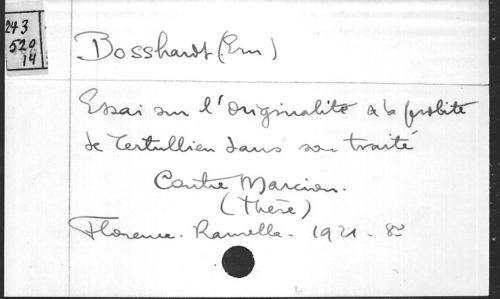 243
520
14
Bosshardt (Ern)
Essai sur l'originalité & la probité
de Tertullien dans son traité
Contre Marcion.
(Thèse)
Florence. Ramella. 1921. 8º